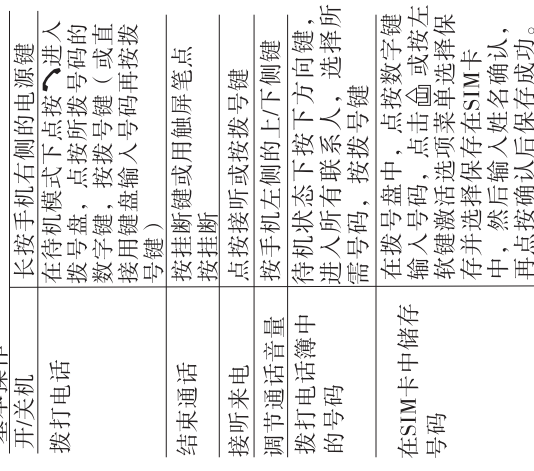 基本操作
开/关机
长按手机右侧的电源键
拨打电话
在待机模式下点按进入
拨号盘，点按所拨号码的
数字键，按拨号键（或直
接用键盘输入号码再按拨
号键）
结束通话
按挂断键或用触屏笔点
按挂断
接听来电
点按接听或按拨号键
调节通话音量
按手机左侧的上/下侧键
拨打电话簿中
的号码
待机状态下按下方向键，
进入所有联系人，选择所
需号码，按拨号键
在SIM卡中储存
号码
在拨号盘中，点按数字键
输入号码，点击 或按左
软键激活选项菜单选择保
存并选择保存在SIM卡
中，然后输入姓名确认，
再点按确认后保存成功。